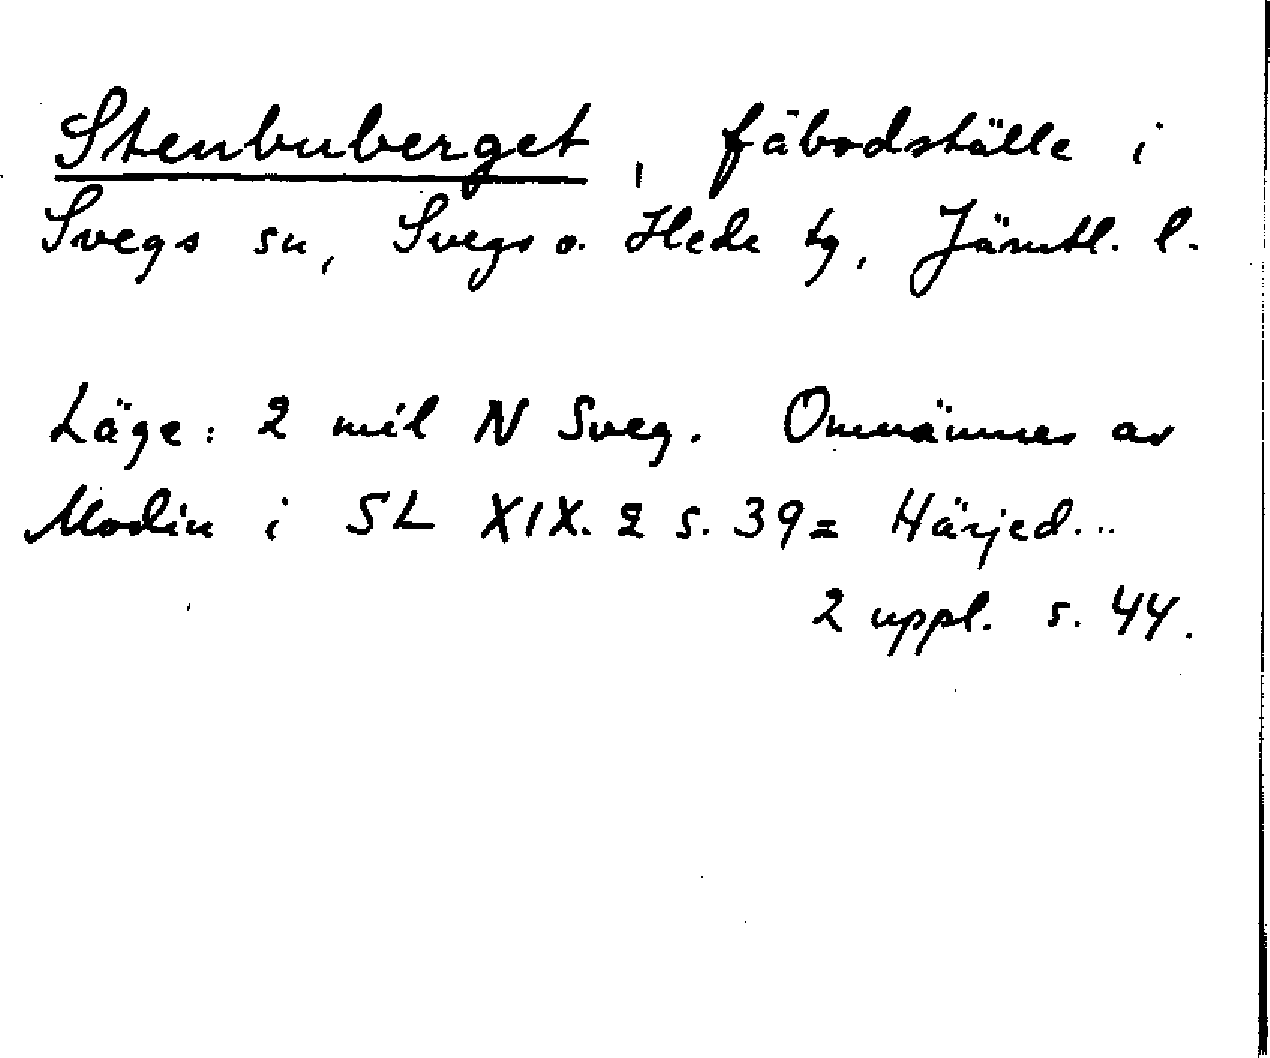 Stenbuberget, fäbodställe i
Svegs sn, Svegs o. Hede tg, Jämtl. l.
Läge: 2 mil N Sveg. Omnämnes av
Modin i SL XIX. 2 s. 39 = Härjed...
2 uppl. s. 44.